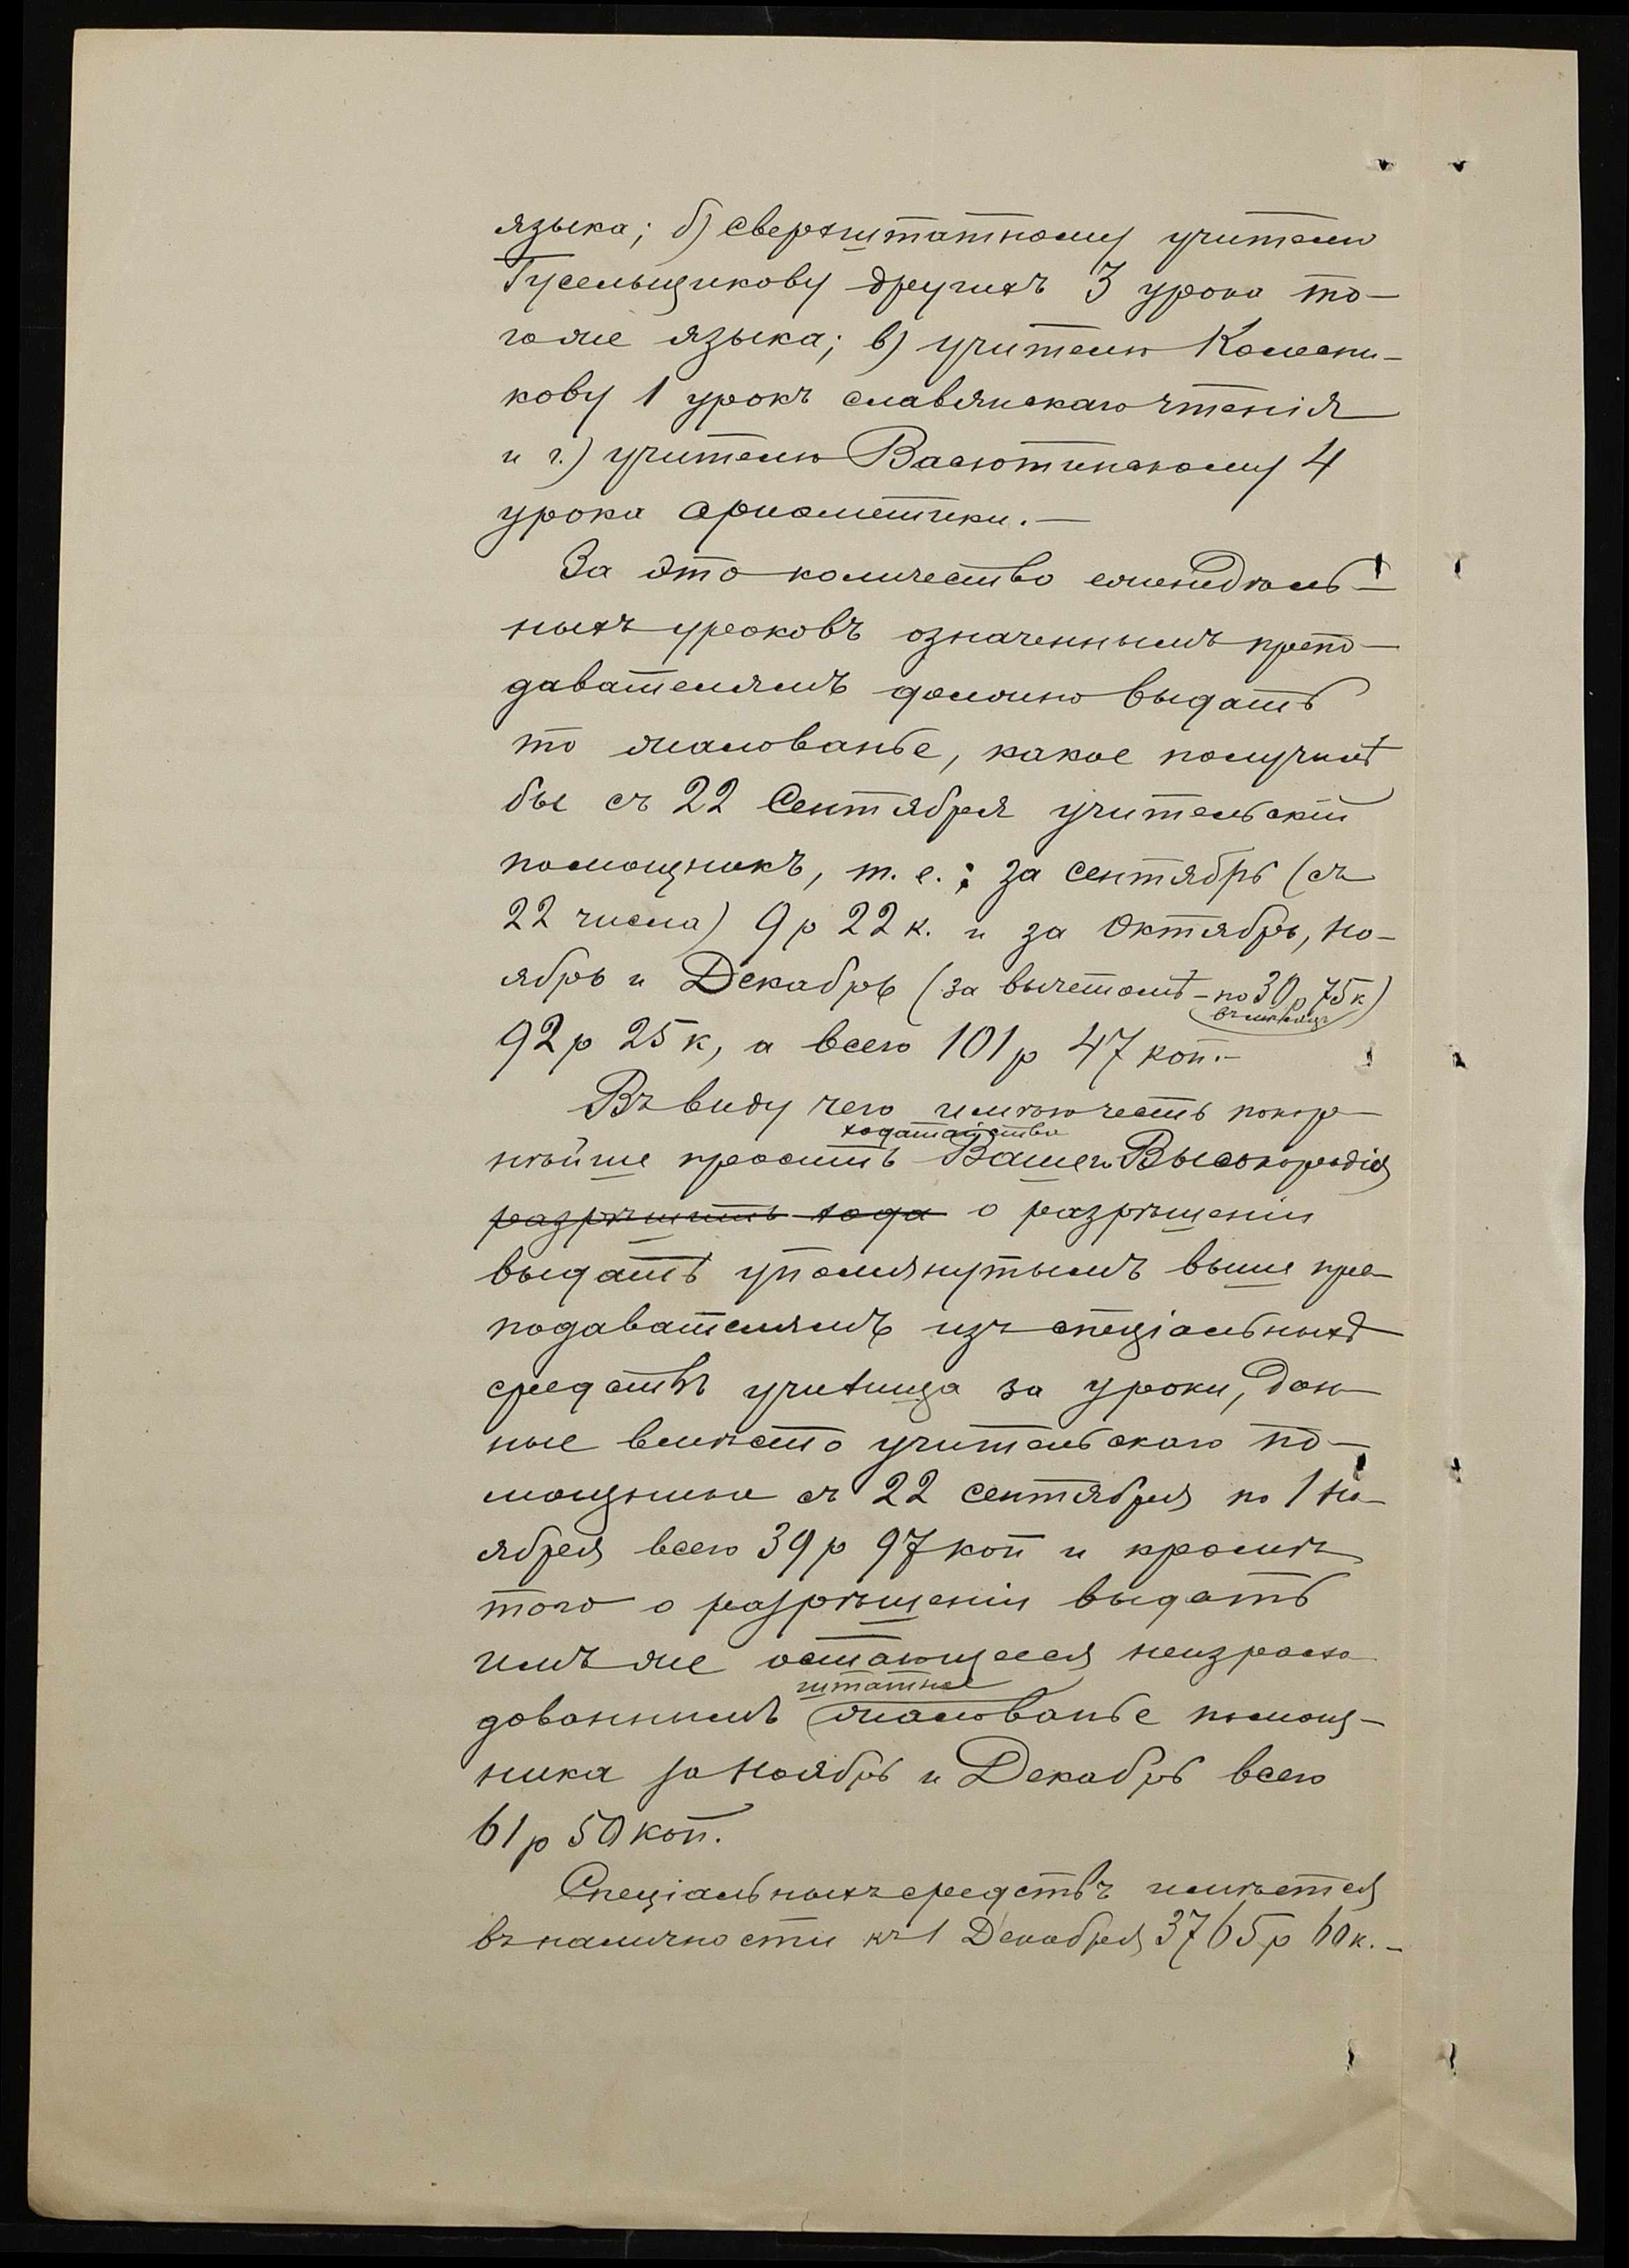 языка; б) сверхштатному учителю
Гусельщикову другихъ 3 урока то-
гоже языка; в) учителю Колесни-
кову 1 урокъ славянскаго чтенія
и г.) учителю Васютинскому 4
урока ариѳметики.—
За это количество еженедѣль-
ныхъ уроковъ означеннымъ препо-
давателямъ должно выдать
то жалованье, какое получилъ
бы съ 22 Сентября учительскій
помощникъ, т. е.: за сентябрь (съ
22 числа) 9 р 22 к. и за Октябрь, Но-
ябрь и Декабрь (за вычетомъ - по 30 р 75 к)
въ мѣсяцъ
92 р 25 к, а всего 101 р 47 коп.-
Въ виду чего имѣю честь покор-
ходатайства
нѣйше просить Вашего Высокородія
разрѣшить хода о разрѣшеніи
выдать упомянутымъ выше пре-
подавателямъ изъ спеціальныхъ
средствъ училища за уроки, дан-
ные вмѣсто учительскаго по-
мощника съ 22 сентября по 1 Но-
ября всего 39 р 97 коп и кромѣ
того о разрѣшеніи выдать
имъ же остающееся неизрасхо-
штатное
дованнымъ жалованье помощ-
ника за Ноябрь и Декабрь всего
61 р 50 коп.
Спеціальныхъ средствъ имѣется
въ наличности къ 1 Декабря 3765 р 60 к.-